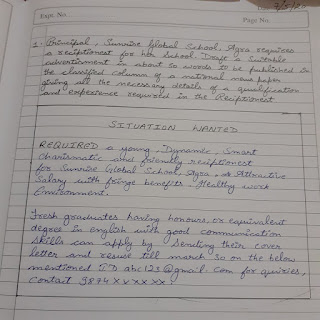 Expt. No.
Page No.
1. Principal, Sunrise Global School, Agra requires
a receptionist for her School. Draft a suitable
advertisement in about 50 words to be published in
the classified column of a national news paper
giving all the necessary details of a qualification
and experience required in the Receptionist
SITUATION WANTED
REQUIRED a young, Dynamic, Smart
charismatic and friendly receptionist
for Sunrise Global School, Agra, Attractive
Salary with fringe benefits. Healthy work
Environment.
Fresh graduates having honours, or equivalent
degree in english with good communication
skills can apply by Sending their cover
letter and resume till march 30 on the below
mentioned ID abc123@gmail.com for quiries,
Contact 9874XXXXXX.